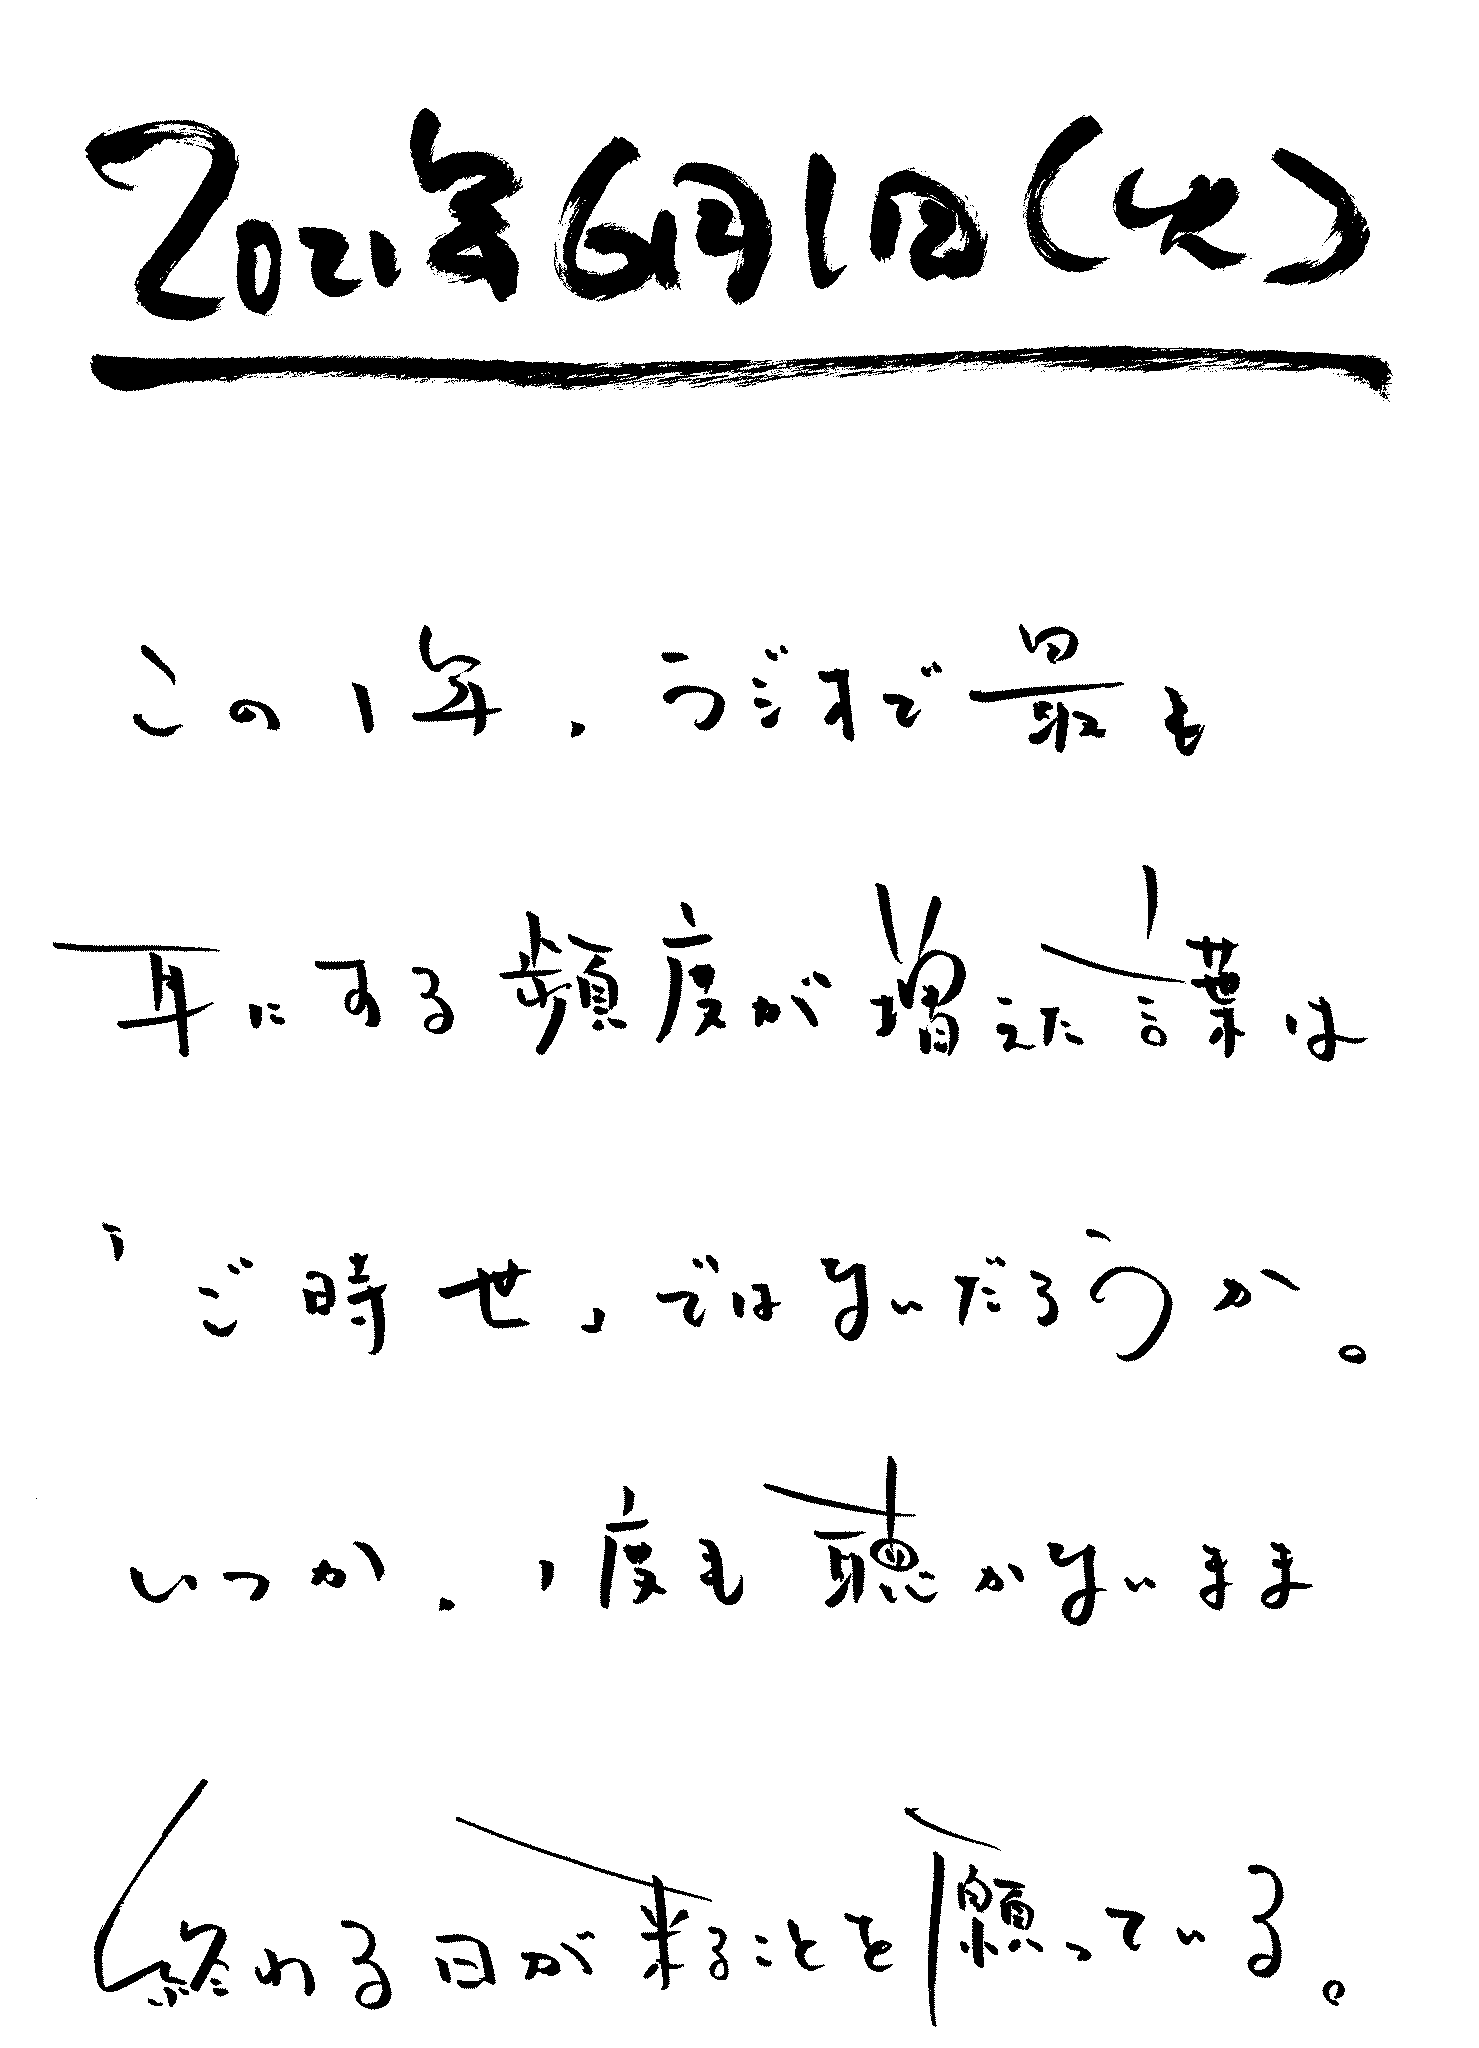 2021年6月1日(火)
この1年、ラジオで最も
耳にする頻度が増えた言葉は
「ご時世」ではないだろうか。
いつか、1度も聴かないまま
終わる日が来ることを願っている。